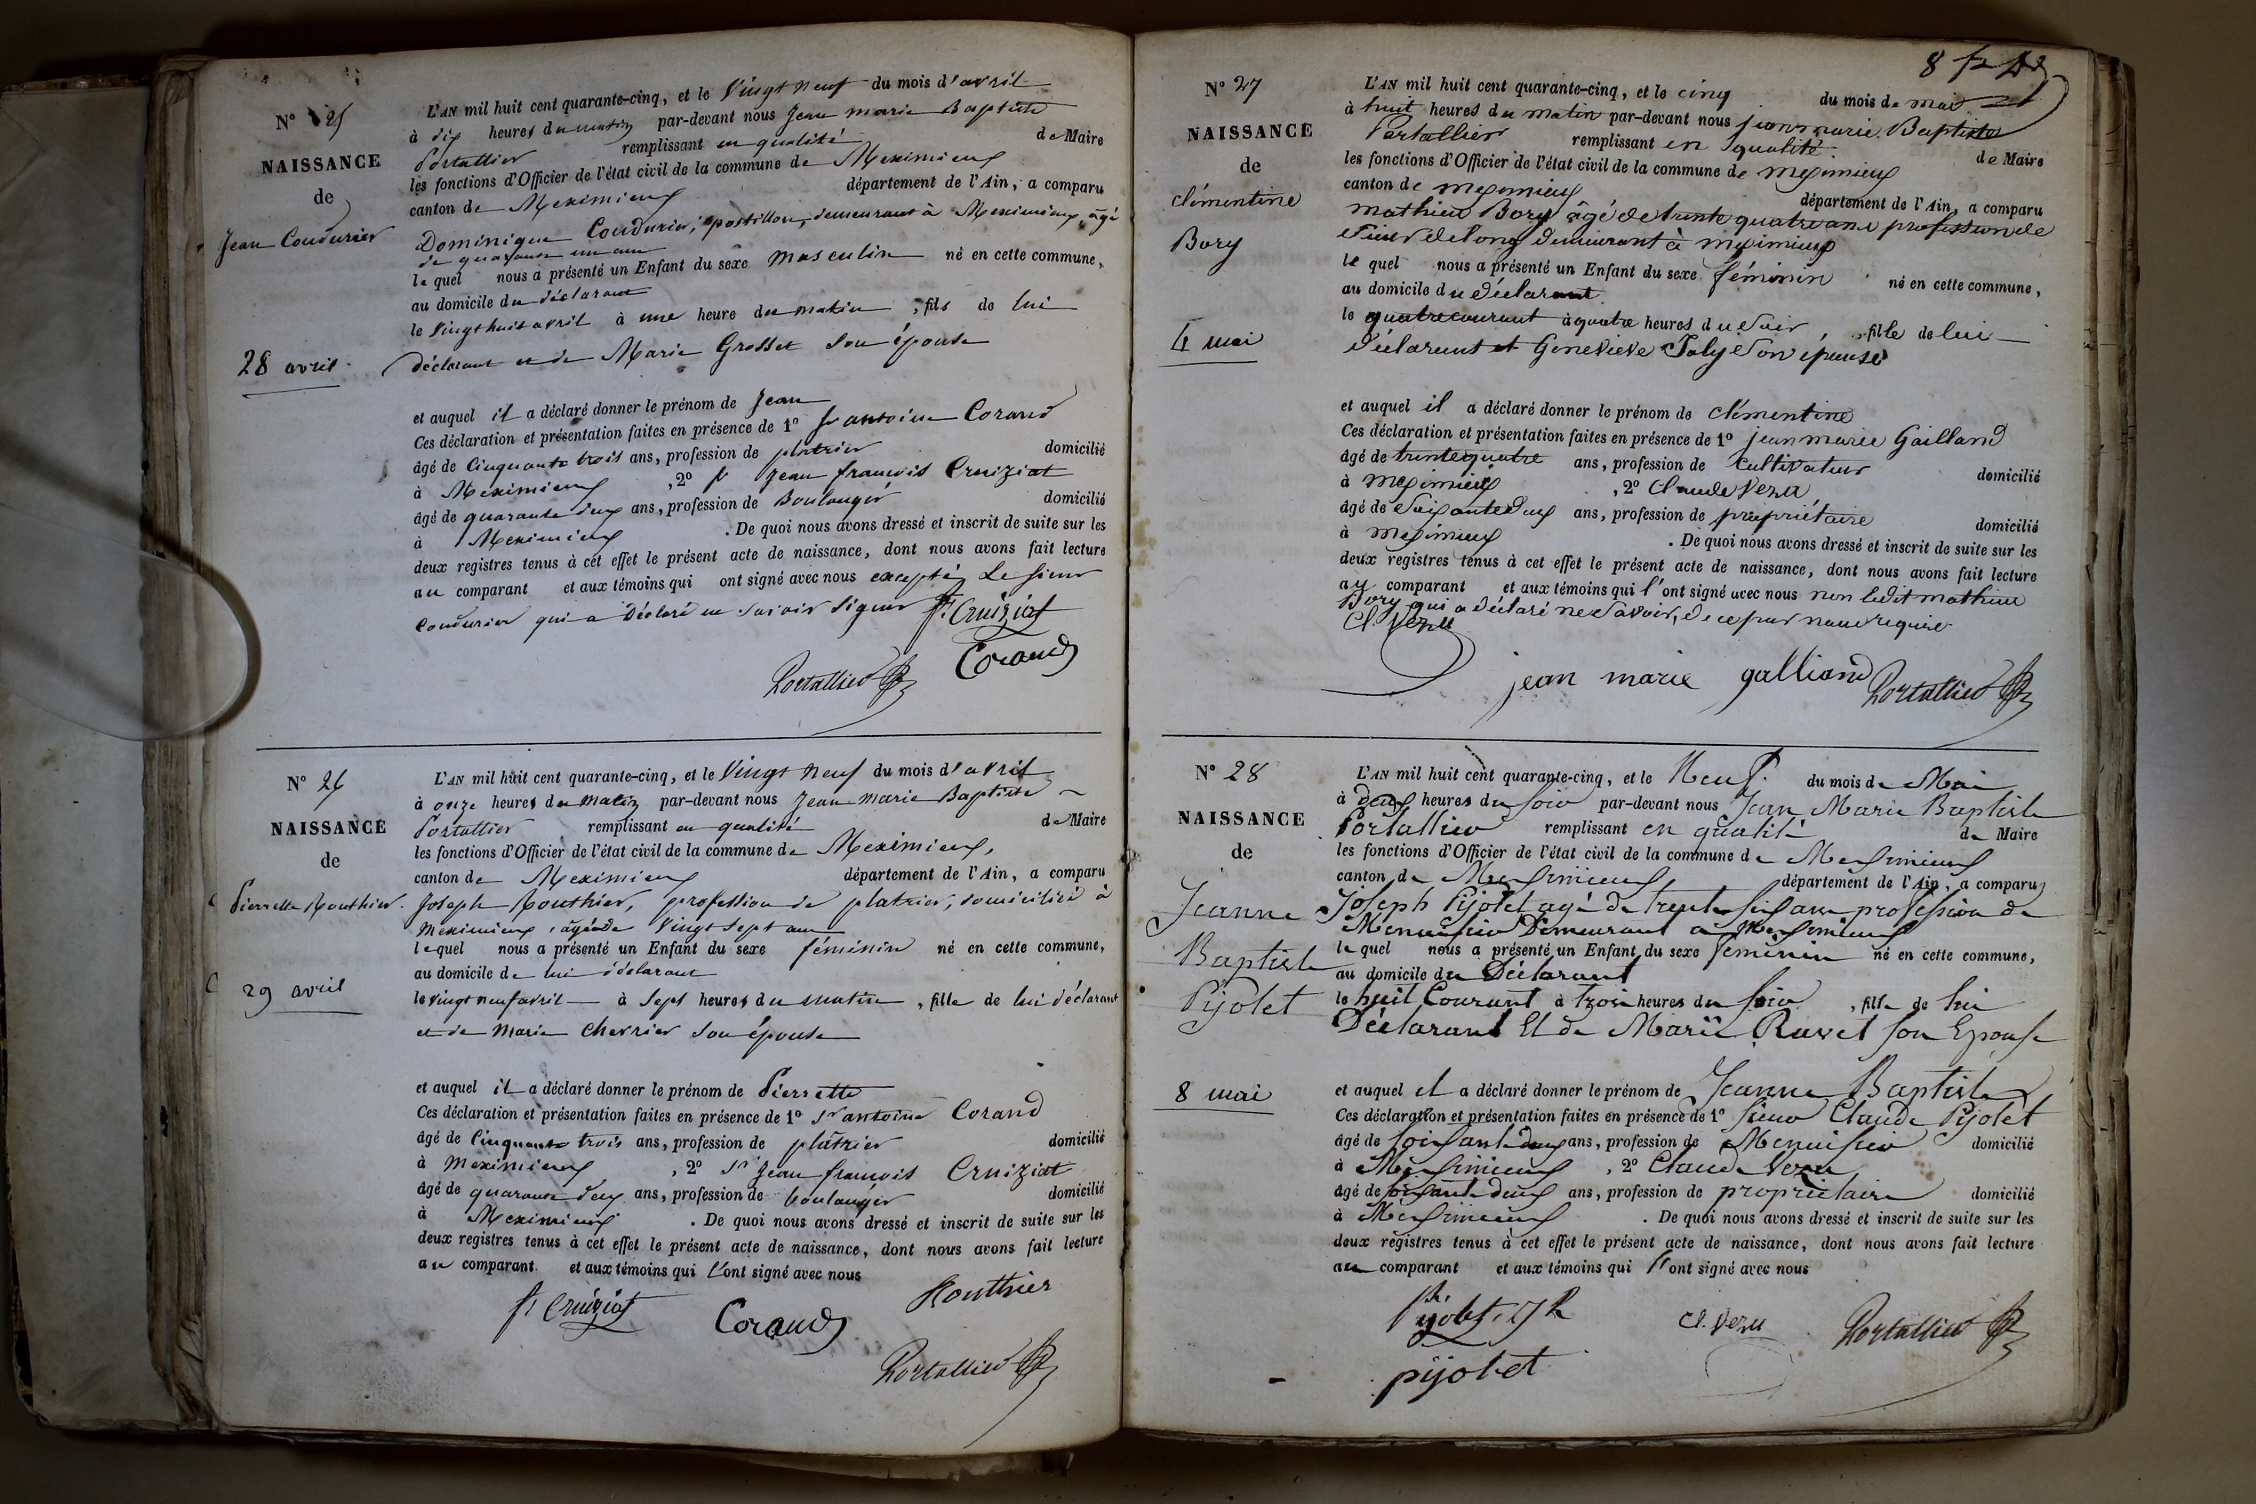 N° 25
NAISSANCE
de
Jean Coudurier
28 avril
L'AN mil huit cent quarante-cinq, et le Vingt neuf du mois d'avril
à dix heures du matin par-devant nous Jean marie Baptiste
Portallier remplissant en qualité de Maire
les fonctions d'Officier de l'état civil de la commune de Meximieux
canton de Meximieux département de l'Ain, a comparu
Dominique Coudurier, postillon, demeurant à Meximieux, âgé
de quarante un ans
lequel nous a présenté un Enfant du sexe masculin né en cette commune,
au domicile du déclarant
le Vingt huit avril à une heure du matin, fils de lui
déclarant et de Marie Grosset son épouse
et auquel il a déclaré donner le prénom de Jean
Ces déclaration et présentation faites en présence de 1° Sr antoine Corand
âgé de Cinquante trois ans, profession de platrier domicilié
à Meximieux, 2° Sr Jean françois Cruiziat
âgé de quarante deux ans, profession de Boulanger domicilié
à Meximieux. De quoi nous avons dressé et inscrit de suite sur les
deux registres tenus à cet effet le présent acte de naissance, dont nous avons fait lecture
au comparant et aux témoins qui ont signé avec nous excepté Le sieur
Coudurier qui a déclaré ne savoir signer F. Cruiziat
Portallier Corand
N° 26
NAISSANCE
de
Pierrette Routhier
29 avril
L'AN mil huit cent quarante-cinq, et le Vingt neuf du mois d'avril
à onze heures du matin par-devant nous Jean marie Baptiste
Portallier remplissant en qualité de Maire
les fonctions d'Officier de l'état civil de la commune de Meximieux,
canton de Meximieux département de l'Ain, a comparu
Joseph Routhier, profession de platrier, domicilié à
Meximieux, âgé de Vingt sept ans
lequel nous a présenté un Enfant du sexe féminin né en cette commune,
au domicile de lui déclarant
le vingt neuf avril à Sept heures du matin, fille de lui déclarant
et de Marie Chevrier son épouse
et auquel il a déclaré donner le prénom de Pierrette
Ces déclaration et présentation faites en présence de 1° Sr antoine Corand
âgé de Cinquante trois ans, profession de platrier domicilié
à Meximieux, 2° Sr Jean françois Cruiziat
âgé de quarante deux ans, profession de boulanger domicilié
à Meximieux. De quoi nous avons dressé et inscrit de suite sur les
deux registres tenus à cet effet le présent acte de naissance, dont nous avons fait lecture
au comparant et aux témoins qui l'ont signé avec nous
F. Cruiziat Corand Routhier
Portallier
8
N° 27
NAISSANCE
de
Clémentine
Bory
4 mai
L'AN mil huit cent quarante-cinq, et le cinq du mois de mai
à huit heures du matin par-devant nous jean marie Baptiste
Portallier remplissant en qualité de Maire
les fonctions d'Officier de l'état civil de la commune de meximieux
canton de meximieux département de l'Ain, a comparu
mathieu Bory âgé de trente quatre ans profession de
sieur de long demeurant à meximieux
lequel nous a présenté un Enfant du sexe féminin né en cette commune,
au domicile du déclarant
le quatre courant à quatre heures du soir, fille de lui
déclarant et Genevieve Joly son épouse
et auquel il a déclaré donner le prénom de clémentine
Ces déclaration et présentation faites en présence de 1° jean marie Gailland
âgé de trente quatre ans, profession de cultivateur domicilié
à meximieux, 2° Claude Vezu
âgé de soixante deux ans, profession de propriétaire domicilié
à meximieux. De quoi nous avons dressé et inscrit de suite sur les
deux registres tenus à cet effet le présent acte de naissance, dont nous avons fait lecture
au comparant et aux témoins qui l'ont signé avec nous non ledit mathieu
Bory qui a déclaré ne savoir, de ce par nous requis
Cl. Vezu
jean marie galliand Portallier
N° 28
NAISSANCE
de
Jeanne
Baptiste
Pijolet
8 mai
L'AN mil huit cent quarante-cinq, et le Neuf du mois de Mai
à deux heures du soir par-devant nous Jean Marie Baptiste
Portallier remplissant en qualité de Maire
les fonctions d'Officier de l'état civil de la commune de Meximieux
canton de Meximieux département de l'Ain, a comparu
Joseph Pijolet agé de trente six ans profession de
Menuisier Demeurant a Meximieux
lequel nous a présenté un Enfant du sexe feminin né en cette commune,
au domicile du Déclarant
le huit Courant à trois heures du soir, fille de lui
Déclarant Et de Marie Ravet son Epouse
et auquel il a déclaré donner le prénom de Jeanne Baptiste
Ces déclaration et présentation faites en présence de 1° sieur Claude Pijolet
âgé de soixante deux ans, profession de Menuisier domicilié
à Meximieux, 2° Claude Vezu
âgé de soixante deux ans, profession de propriétaire domicilié
à Meximieux. De quoi nous avons dressé et inscrit de suite sur les
deux registres tenus à cet effet le présent acte de naissance, dont nous avons fait lecture
au comparant et aux témoins qui l'ont signé avec nous
Pijolet Cl. Vezu Portallier
pijolet